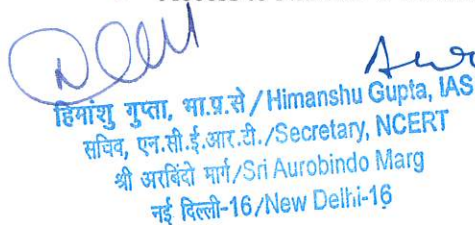 हिमांशु गुप्ता, भा.प्र.से / Himanshu Gupta, IAS
सचिव, एन.सी.ई.आर.टी./Secretary, NCERT
श्री अरबिंदो मार्ग/Sri Aurobindo Marg
नई दिल्ली-16/New Delhi-16